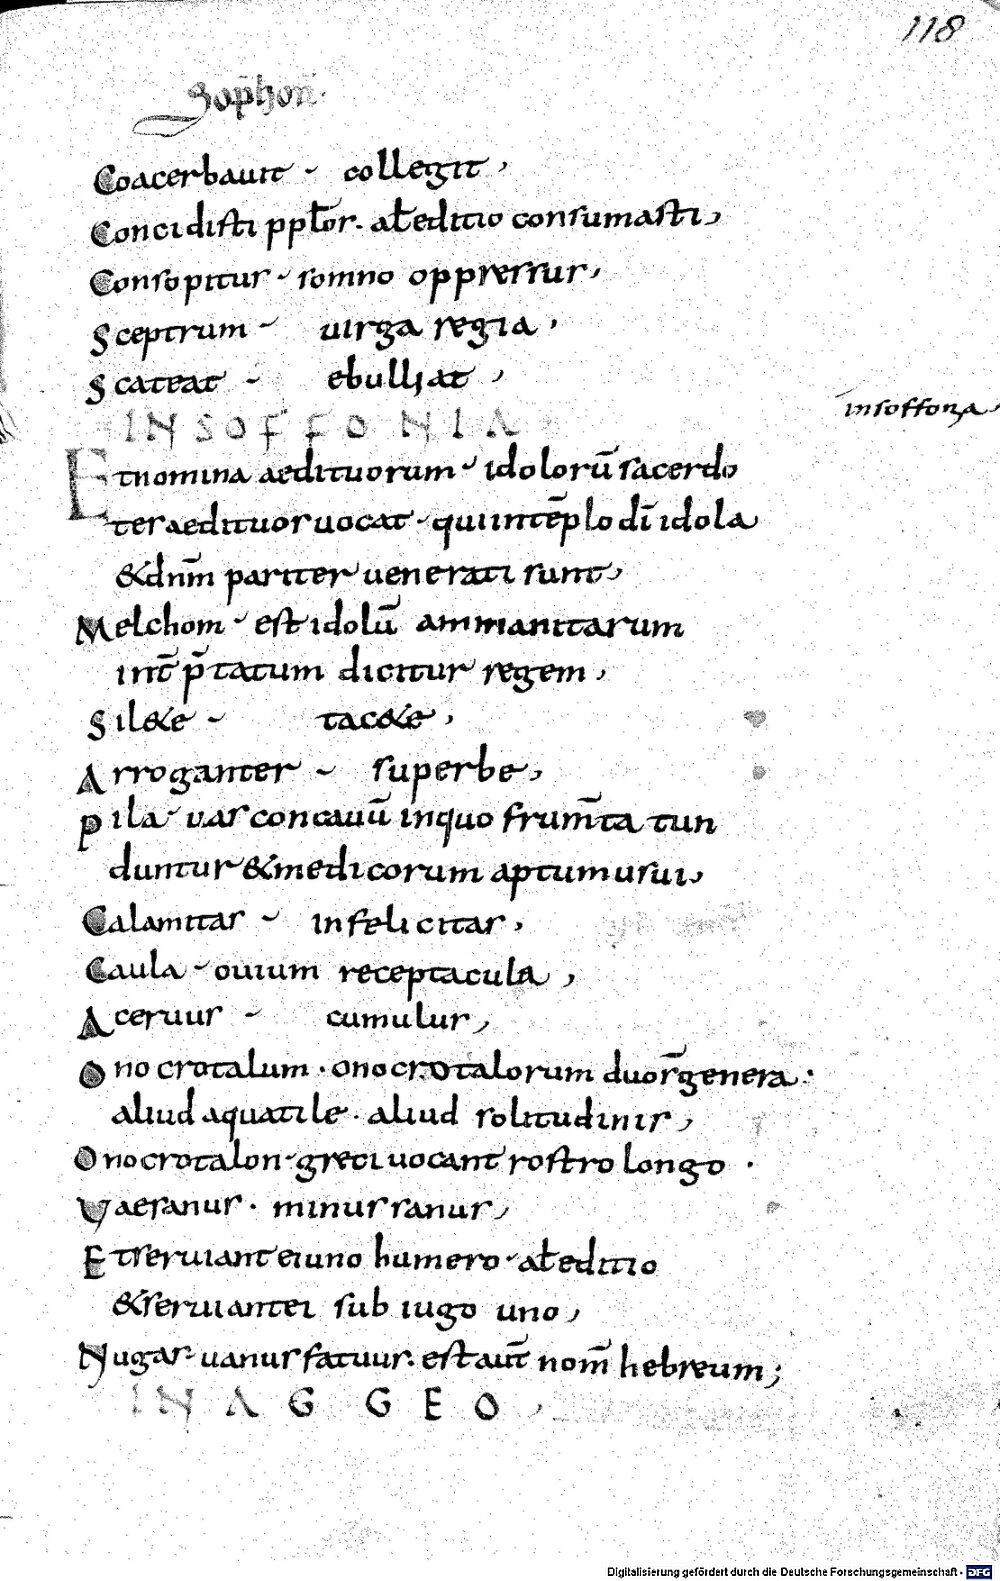 118
Sophon̄.
Coacerbauit - collegit,
Concidisti ppl̄os. al̄ editio consumasti,
Consopitus - somno oppressus,
Sceptrum - uirga regia,
Scateat - ebulliat,
IN SOFFONIA
insoffonia
Et nomina aedituorum - idolorū sacerdo
tes aedituos uocat - qui in tēplo dī idola
& dnm̄ pariter uenerati sunt,
Melchom - est idolū ammanitarum
int̄ p̄tatum dicitur regem,
Sil&e - tac&e,
Arroganter - superbe,
Pila - uas concauū in quo frum̄ta tun
duntur & medicorum aptum usui,
Calamitas - infelicitas,
Caula - ouium receptacula,
Aceruus - cumulus,
Onocrotalum . onocrotalorum duor̄ genera.
aliud aquatile . aliud solitudinis,
Onocrotalon - greci uocant rostro longo .
Vaesanus . minus sanus,
Et seruiant ei uno humero - al̄ editio
& seruiant ei sub iugo uno,
Nugas - uanus fatuus. est aut̄ nom̄ hebreum;
IN AGGEO,
Digitalisierung gefördert durch die Deutsche Forschungsgemeinschaft - DFG